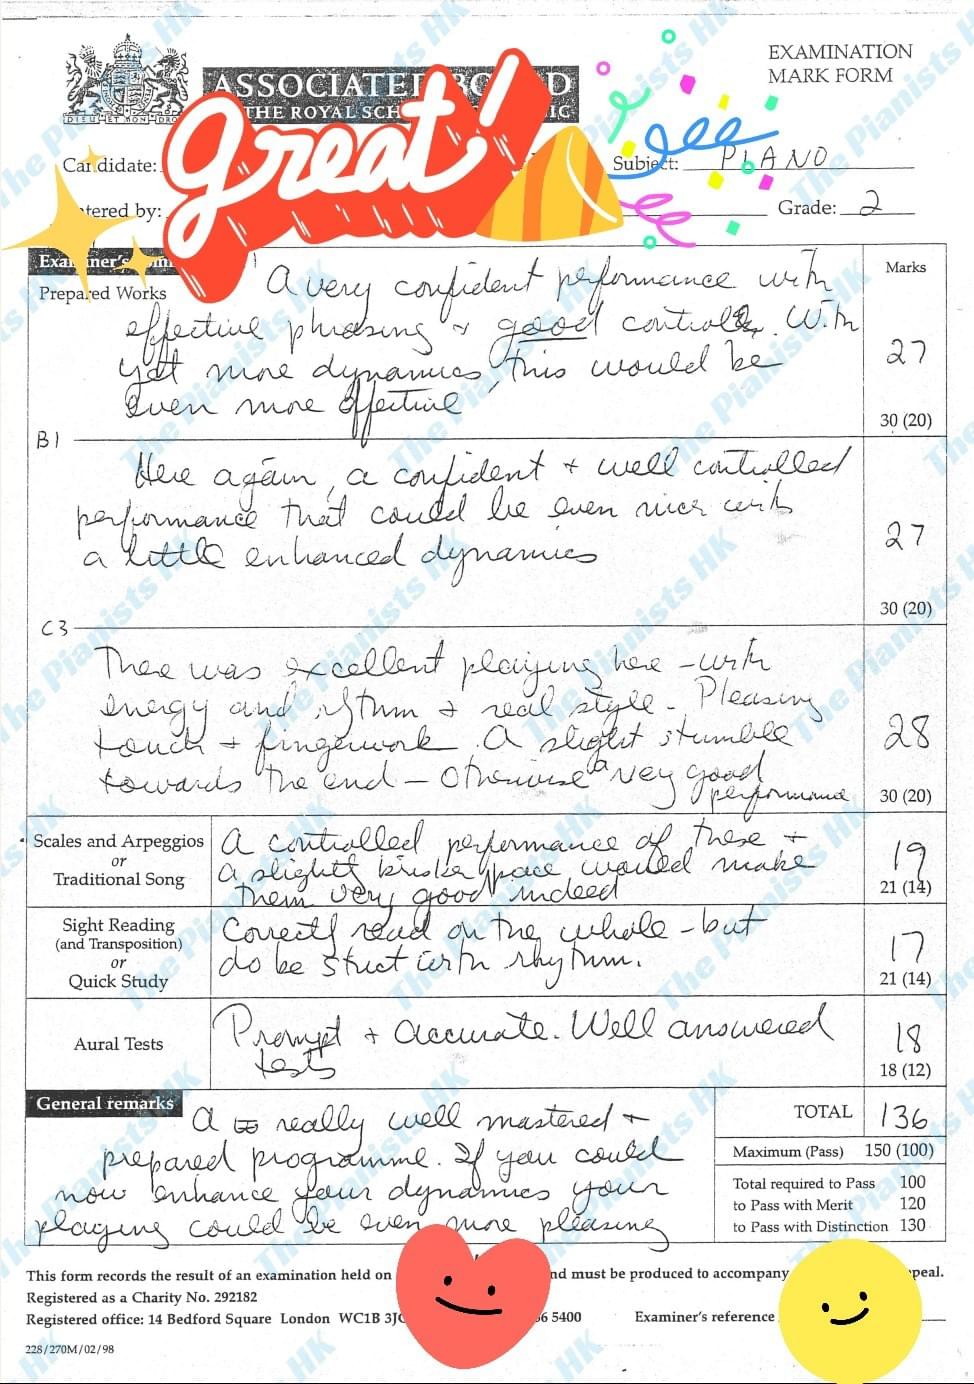 EXAMINATION
MARK FORM
ASSOCIATED BOARD
THE ROYAL SCH
DIEU ET MON DRO
great!
Candidate:
Subject: PIANO
tered by:
Grade: 2
Examiner's
Marks
Prepared Works
A very confident performance with
effective phrasing + good control. With
yet more dynamics, this would be
even more effective
27
30 (20)
B1
Here again, a confident + well controlled
performance that could be even nicer with
a little enhanced dynamics
27
30 (20)
C3
There was excellent playing here - with
energy and rythm + real style - Pleasing
touch + fingerwork. A slight stumble
towards the end - otherwise a very good
performance
28
30 (20)
Scales and Arpeggios
or
Traditional Song
A controlled performance of these +
a slightly brisker pace would make
them very good indeed
19
21 (14)
Sight Reading
(and Transposition)
or
Quick Study
Correctly read on the whole - but
do be strict with rhythm.
17
21 (14)
Aural Tests
Prompt + accurate. Well answered
tests
18
18 (12)
General remarks
A really well mastered +
prepared programme. If you could
now enhance your dynamics your
playing could be even more pleasing
TOTAL 136
Maximum (Pass) 150 (100)
Total required to Pass 100
to Pass with Merit 120
to Pass with Distinction 130
This form records the result of an examination held on nd must be produced to accompany peal.
Registered as a Charity No. 292182
Registered office: 14 Bedford Square London WC1B 3J 6 5400 Examiner's reference
228/270M/02/98
The Pianists HK